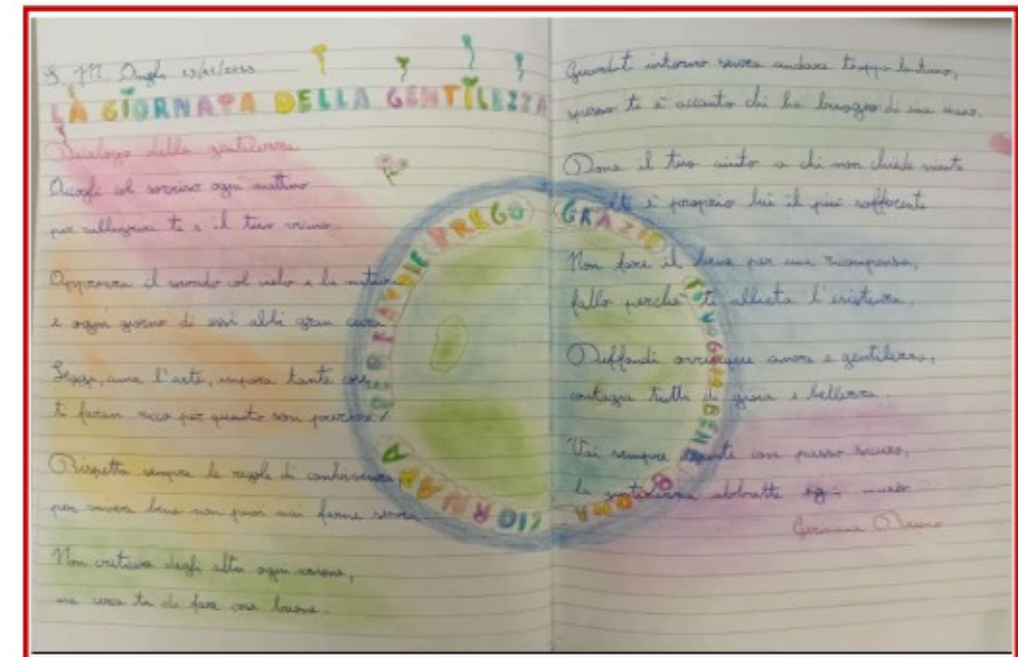 S. M. Degli 13/11/2023
LA GIORNATA DELLA GENTILEZZA
Decalogo della gentilezza
Accogli col sorriso ogni mattino
per rallegrare te e il tuo vicino.
Apprezza il mondo col cielo e la natura
e ogni giorno di essi abbi gran cura
Leggi, ama l'arte, impara tante cose
ti faran ricco per quanto son preziose!
Rispetta sempre le regole di convivenza,
per vivere bene non puoi mai farne senza.
Non criticare degli altri ogni errore,
ma cerca tu di fare cose buone.
Guardati intorno senza andare troppo lontano,
spesso ti è accanto chi ha bisogno di una mano.
Dona il tuo aiuto a chi non chiede niente
a volte è proprio lui il più sofferente
Non fare il bene per una ricompensa,
fallo perché ti allieta l'esistenza.
Diffondi ovunque amore e gentilezza,
contagia tutti di gioia e bellezza.
Vai sempre avanti con passo sicuro,
la gentilezza abbatte ogni muro
Germana Bruno
PER FAVORE PREGO GRAZIE TI VOGLIO BENE BUONA GIORNATA